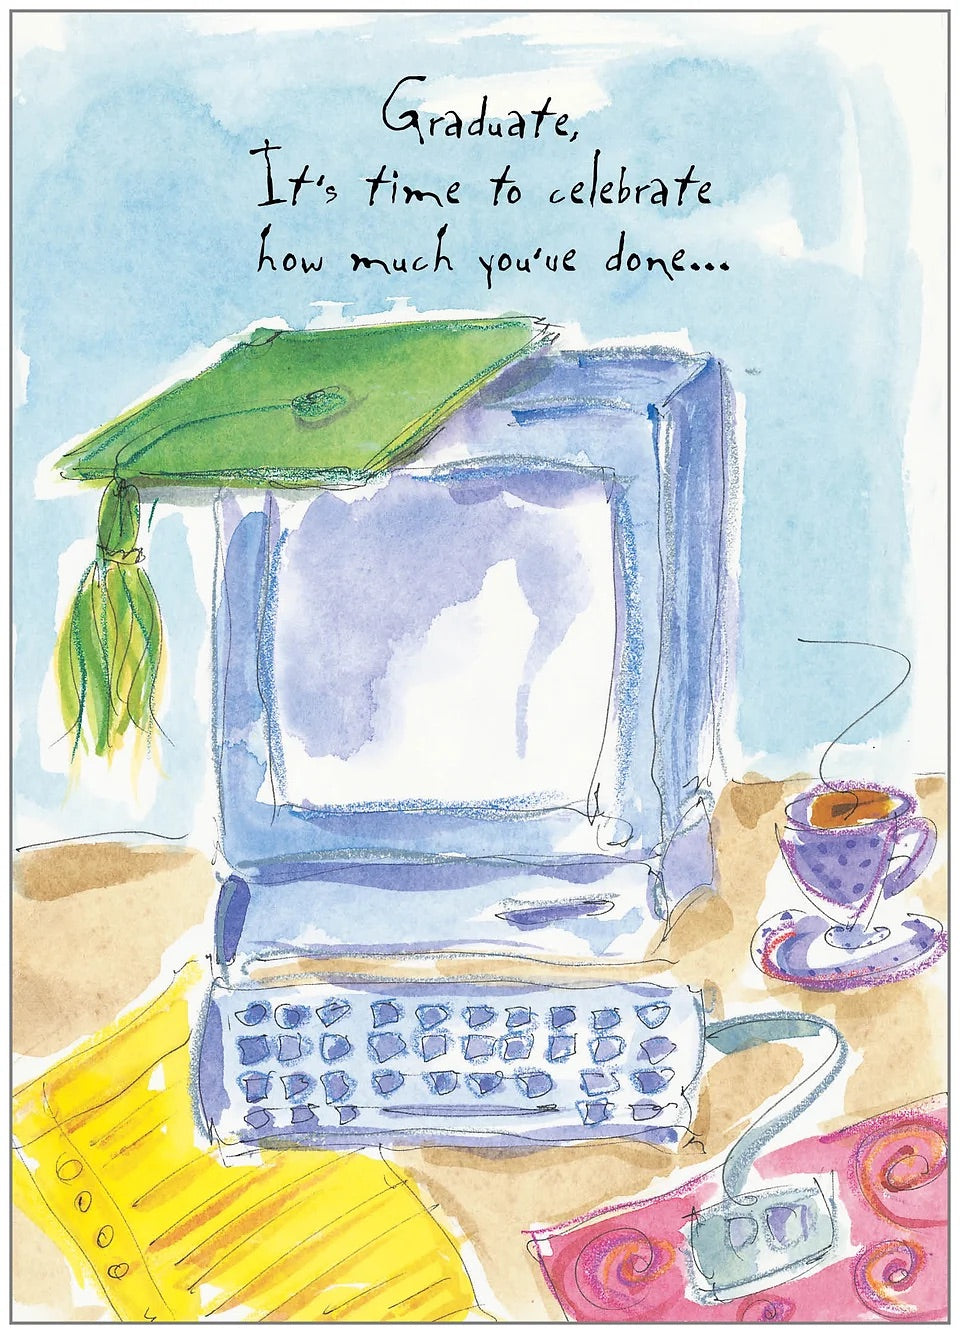 Graduate,
It's time to celebrate
how much you've done...